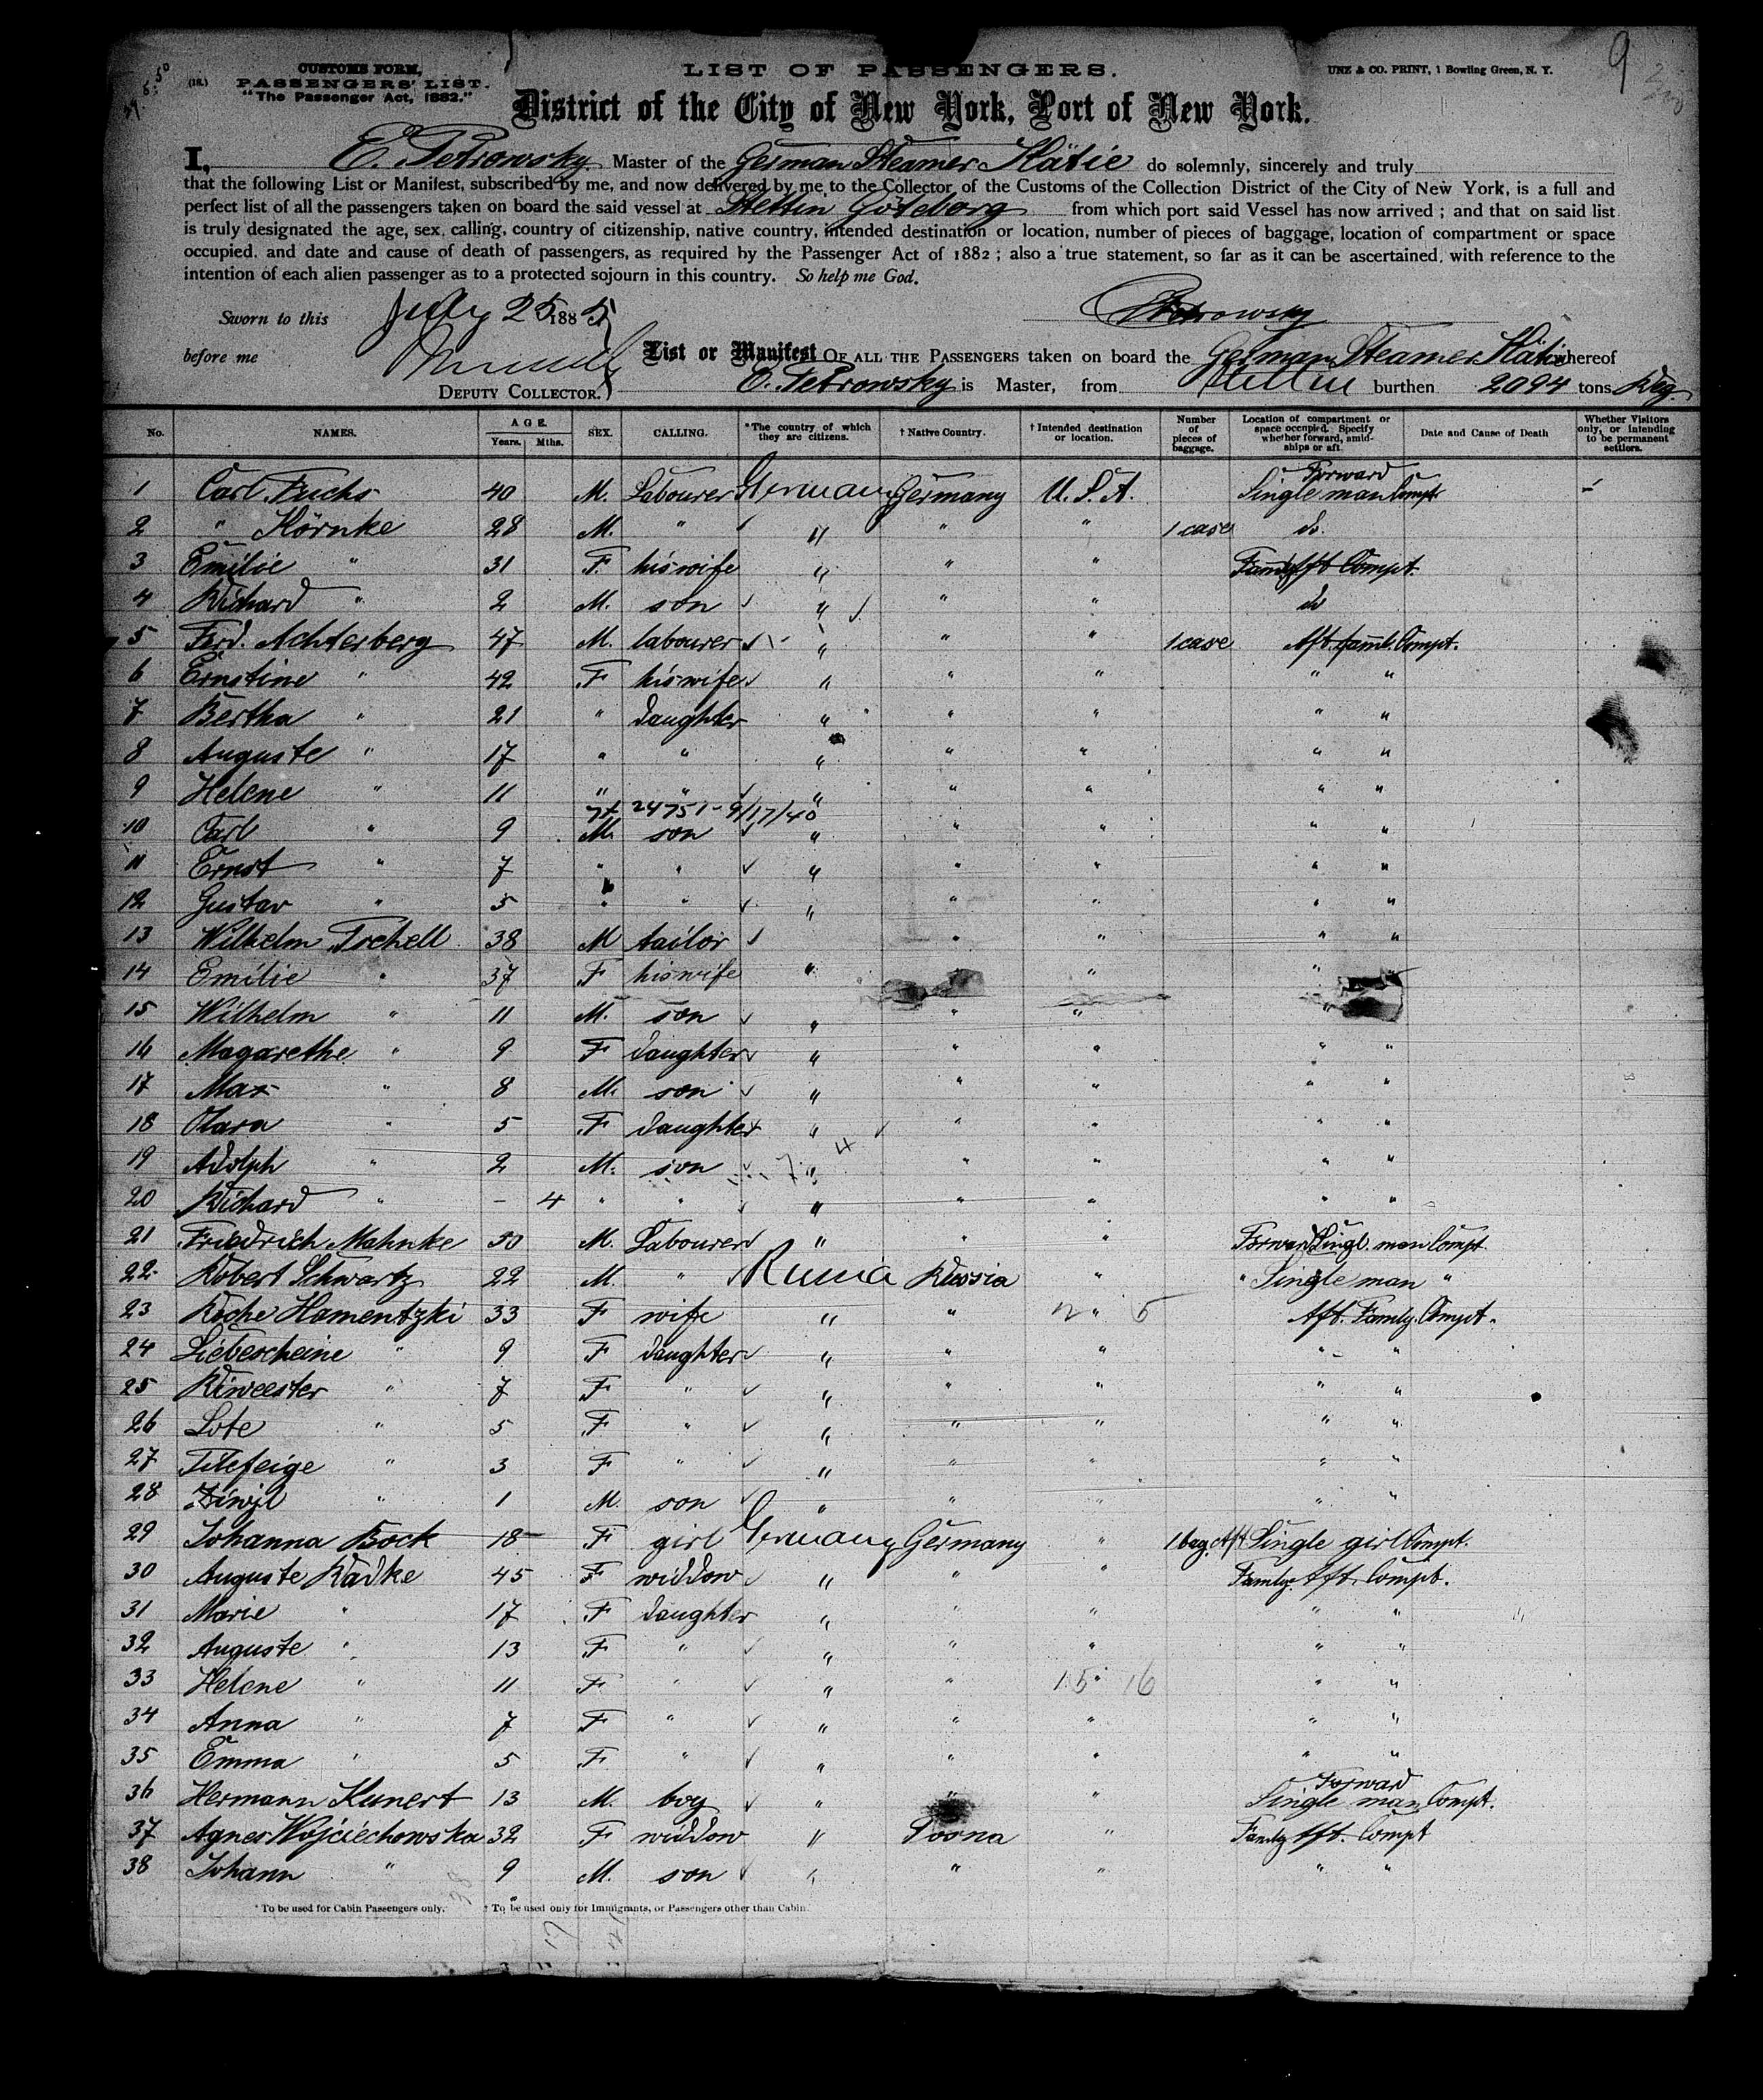 9
CUSTOMS FORM,
(18.) PASSENGERS' LIST.
"The Passenger Act, 1882."
LIST OF PASSENGERS.
UNZ & CO. PRINT, 1 Bowling Green, N. Y.
District of the City of New York, Port of New York.
I, E. Petrowsky Master of the German Steamer Kätie do solemnly, sincerely and truly
that the following List or Manifest, subscribed by me, and now delivered by me to the Collector of the Customs of the Collection District of the City of New York, is a full and
perfect list of all the passengers taken on board the said vessel at Stettin Göteborg from which port said Vessel has now arrived; and that on said list
is truly designated the age, sex, calling, country of citizenship, native country, intended destination or location, number of pieces of baggage, location of compartment or space
occupied, and date and cause of death of passengers, as required by the Passenger Act of 1882; also a true statement, so far as it can be ascertained, with reference to the
intention of each alien passenger as to a protected sojourn in this country. So help me God.
Sworn to this July 25 1885 Petrowsky
before me List or Manifest OF ALL THE PASSENGERS taken on board the German Steamer Kätie whereof
DEPUTY COLLECTOR. E. Petrowsky is Master, from Stettin burthen 2094 tons Reg.
No. NAMES. AGE. Years. Mths. SEX. CALLING. *The country of which they are citizens. † Native Country. † Intended destination or location. Number of pieces of baggage. Location of compartment or space occupied. Specify whether forward, amidships or aft. Date and Cause of Death Whether Visitors only, or intending to be permanent settlers.
1 Carl Fuchs 40 M. Labourer Germany Germany U.S.A. Forward Single man Compt
2 " Körnke 28 M. " " " " 1 case do.
3 Emilie " 31 F. his wife " " " Family Aft Compt.
4 Richard " 2 M. son " " " do
5 Ferd. Achterberg 47 M. labourer " " " 1 case Aft. Famil. Compt.
6 Ernstine " 42 F his wife " " " " "
7 Bertha " 21 " daughter " " " " "
8 Auguste " 17 " " " " " " "
9 Helene " 11 " " " " " " "
24751-9/17/40
10 Carl " 9 M. son " " " " "
11 Ernst " 7 " " " " " " "
12 Gustav " 5 " " " " " " "
13 Wilhelm Tschell 38 M tailor " " " "
14 Emilie " 37 F his wife " " "
15 Wilhelm " 11 M. son " " " "
16 Magarethe " 9 F daughter " " " " "
17 Max " 8 M. son " " " " "
18 Clara " 5 F daughter " " " " "
19 Adolph " 2 M. son " " " " "
20 Richard " - 4 " " " " " " "
21 Friedrich Mahnke 50 M. Labourer " " " Forward Singl. man Compt.
22 Robert Schwartz 22 M. " Russia Russia " " Single man "
23 Roche Hamentzki 33 F wife " " " Aft. Family. Compt.
24 Liebescheine " 9 F daughter " " " " "
25 Riweester " 7 F " " " " " "
26 Lote " 5 F " " " " " "
27 Titefeige " 3 F " " " " " "
28 " 1 M. son " " " " "
29 Johanna Bock 18 F girl Germany Germany " 1 bag. Aft Single girl Compt.
30 Auguste Radke 45 F widdow " " " Family Aft. Compt.
31 Marie " 17 F daughter " " " " "
32 Auguste " 13 F " " " " " "
33 Helene " 11 F " " " " " "
34 Anna " 7 F " " " " " "
35 Emma " 5 F " " " " " "
36 Hermann Kunert 13 M. boy " " " Forward Single man Compt.
37 Agnes Wojciechowska 32 F widdow " Posna " Family Aft. Compt
38 Johann " 9 M. son " " " " "
* To be used for Cabin Passengers only. † To be used only for Immigrants, or Passengers other than Cabin.